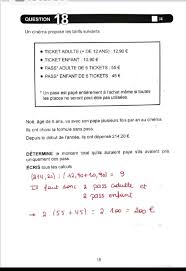 QUESTION 18
Un cinéma propose les tarifs suivants
• TICKET ADULTE (+ DE 12 ANS) : 12,90 €
• TICKET ENFANT : 10,90 €
• PASS* ADULTE DE 5 TICKETS : 55 €
• PASS* ENFANT DE 5 TICKETS : 45 €
* Un pass est payé entièrement à l'achat même si toutes
les places ne seront peut être pas utilisées.
Noé, âgé de 8 ans, va avec son papa plusieurs fois par an au cinéma.
Ils ont choisi la formule sans pass.
Depuis le début de l'année, ils ont dépensé 214,20 €.
DÉTERMINE le montant total qu'ils auraient payé s'ils avaient pris
uniquement des pass.
ÉCRIS tous tes calculs.
(214,20) : (12,90+10,90) = 9
Il faut donc 2 pass adulte et
2 pass enfant
→ 2 (55+45) = 2.100 = 200 €
18